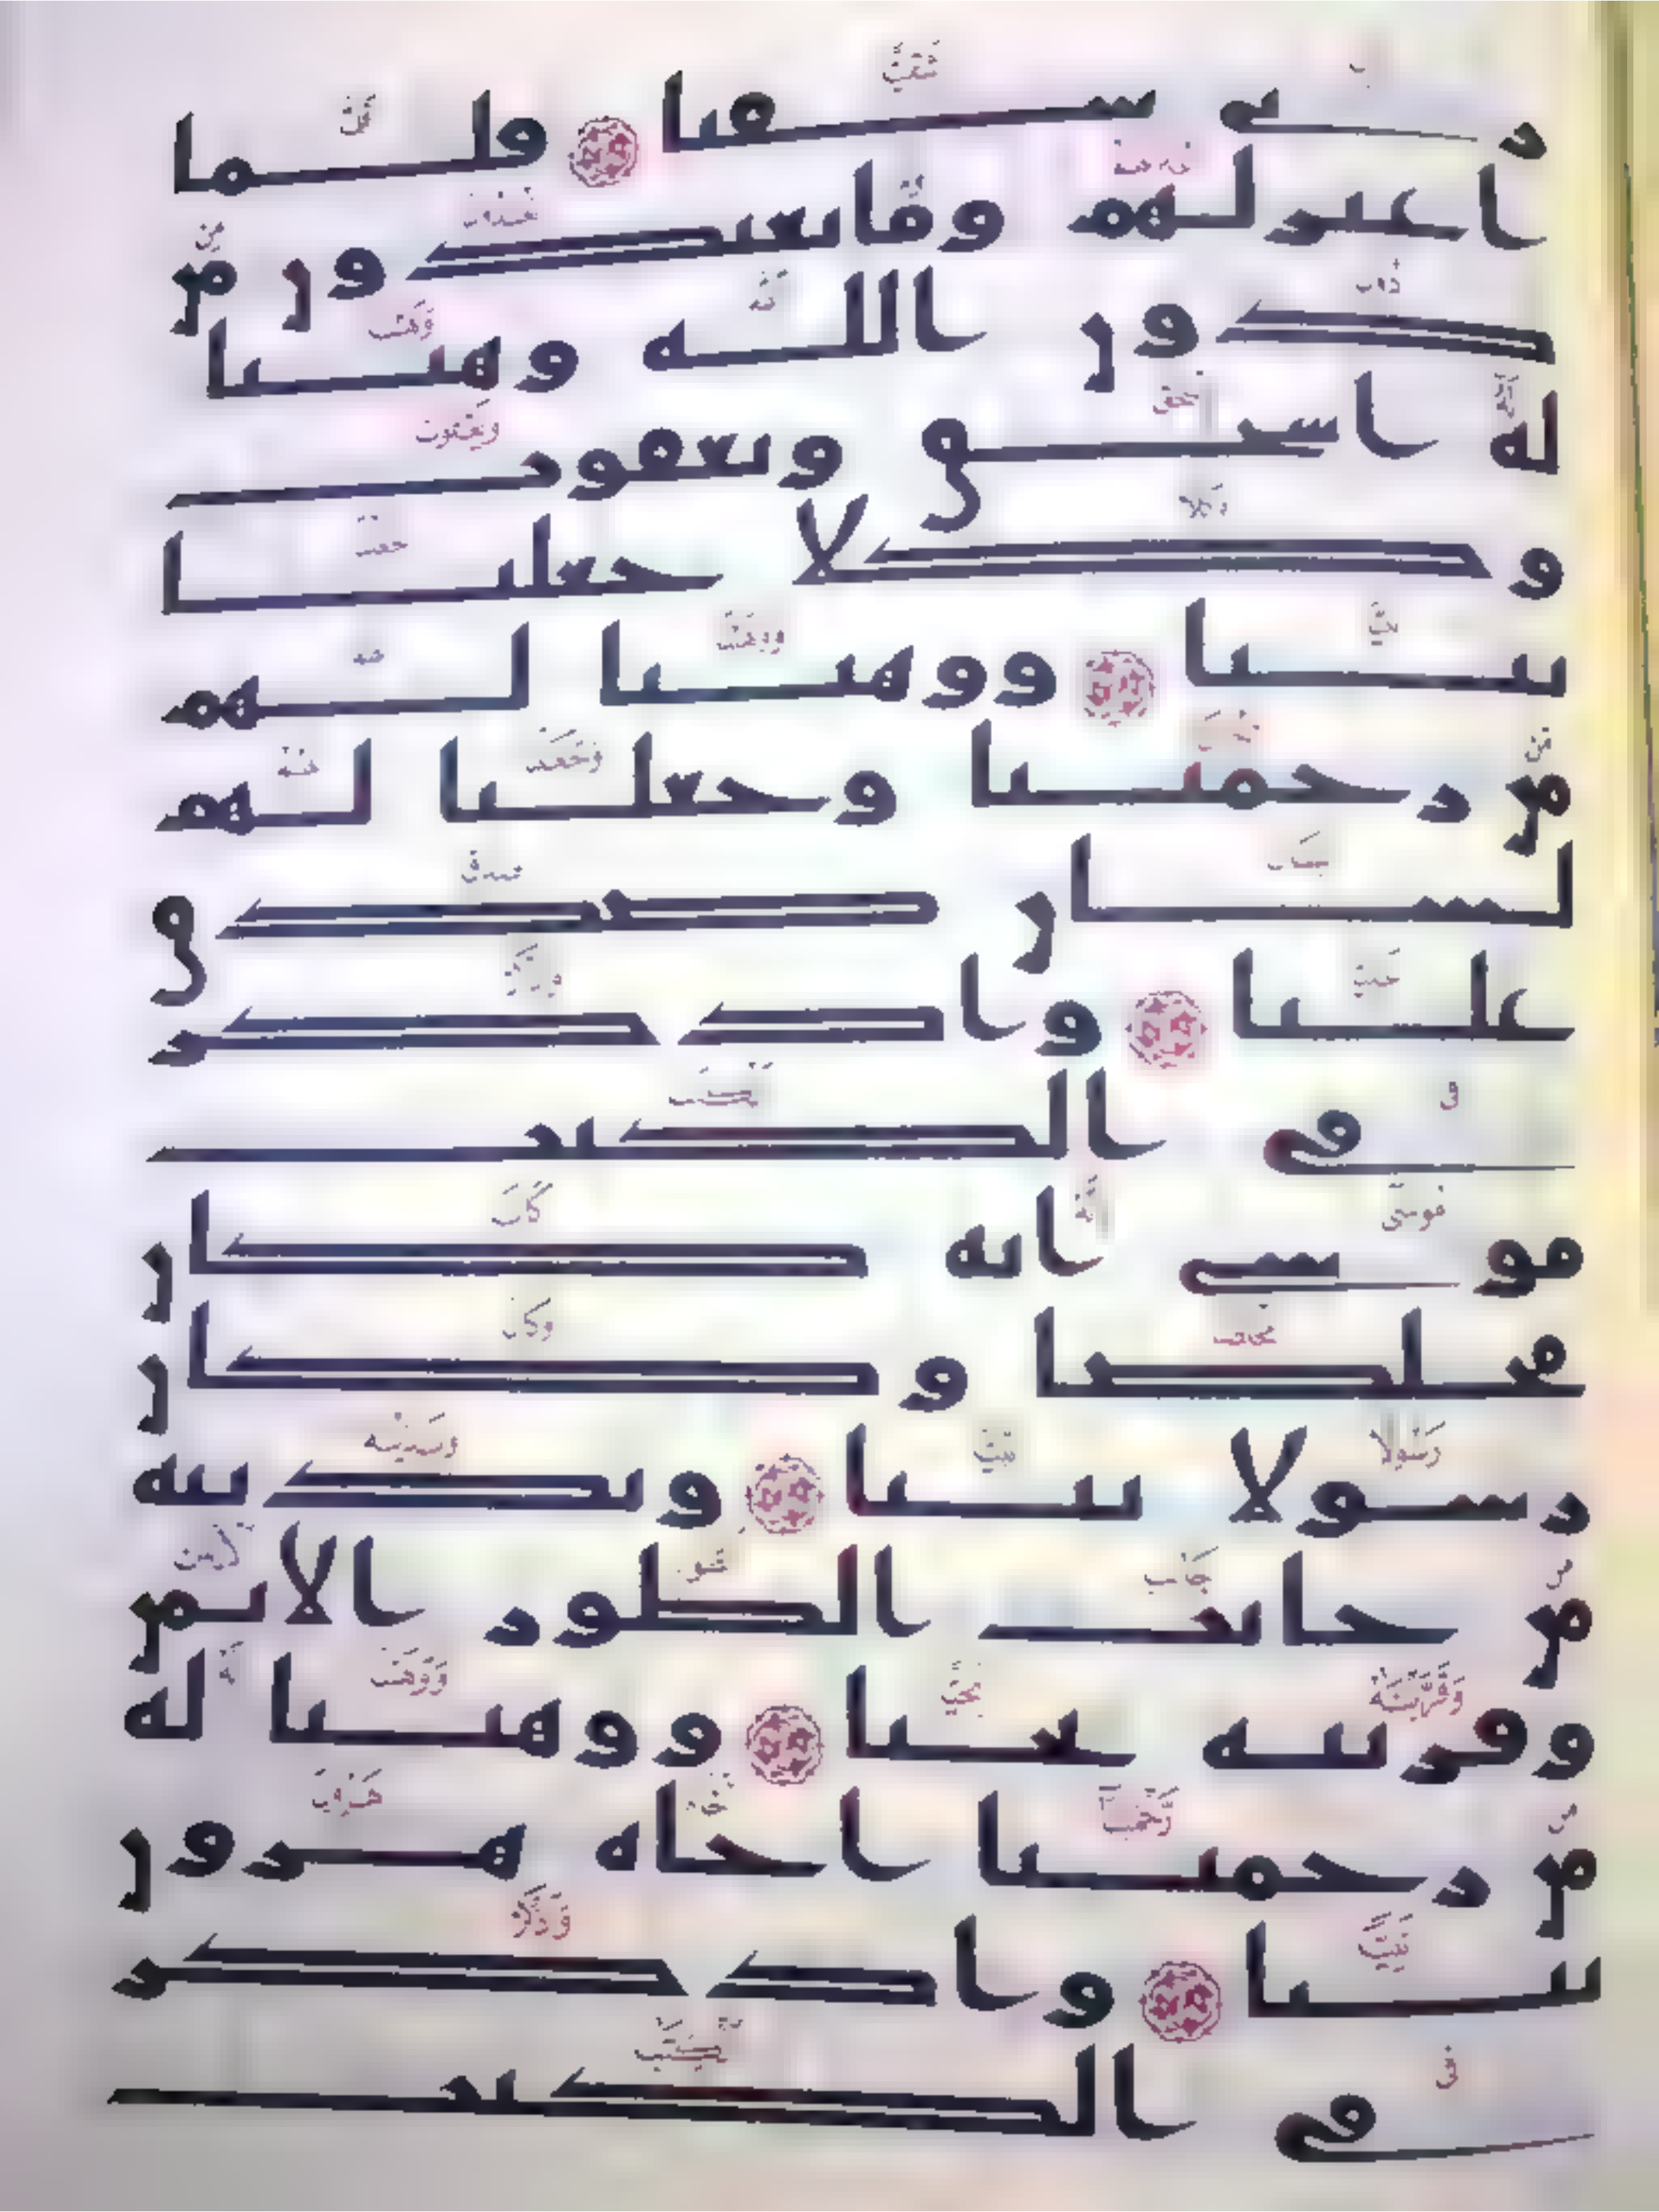 ربي شقيا فلما
اعتزلهم وما يعبدون من
دون الله وهبنا
له اسحق ويعقوب
وكلا جعلنا
نبيا ووهبنا لهم
من رحمتنا وجعلنا لهم
لسان صدق
عليا واذكر
في الكتب
موسى انه كان
مخلصا وكان
رسولا نبيا وندينه
من جانب الطور الايمن
وقربنه نجيا ووهبنا له
من رحمتنا اخاه هرون
نبيا واذكر
في الكتب